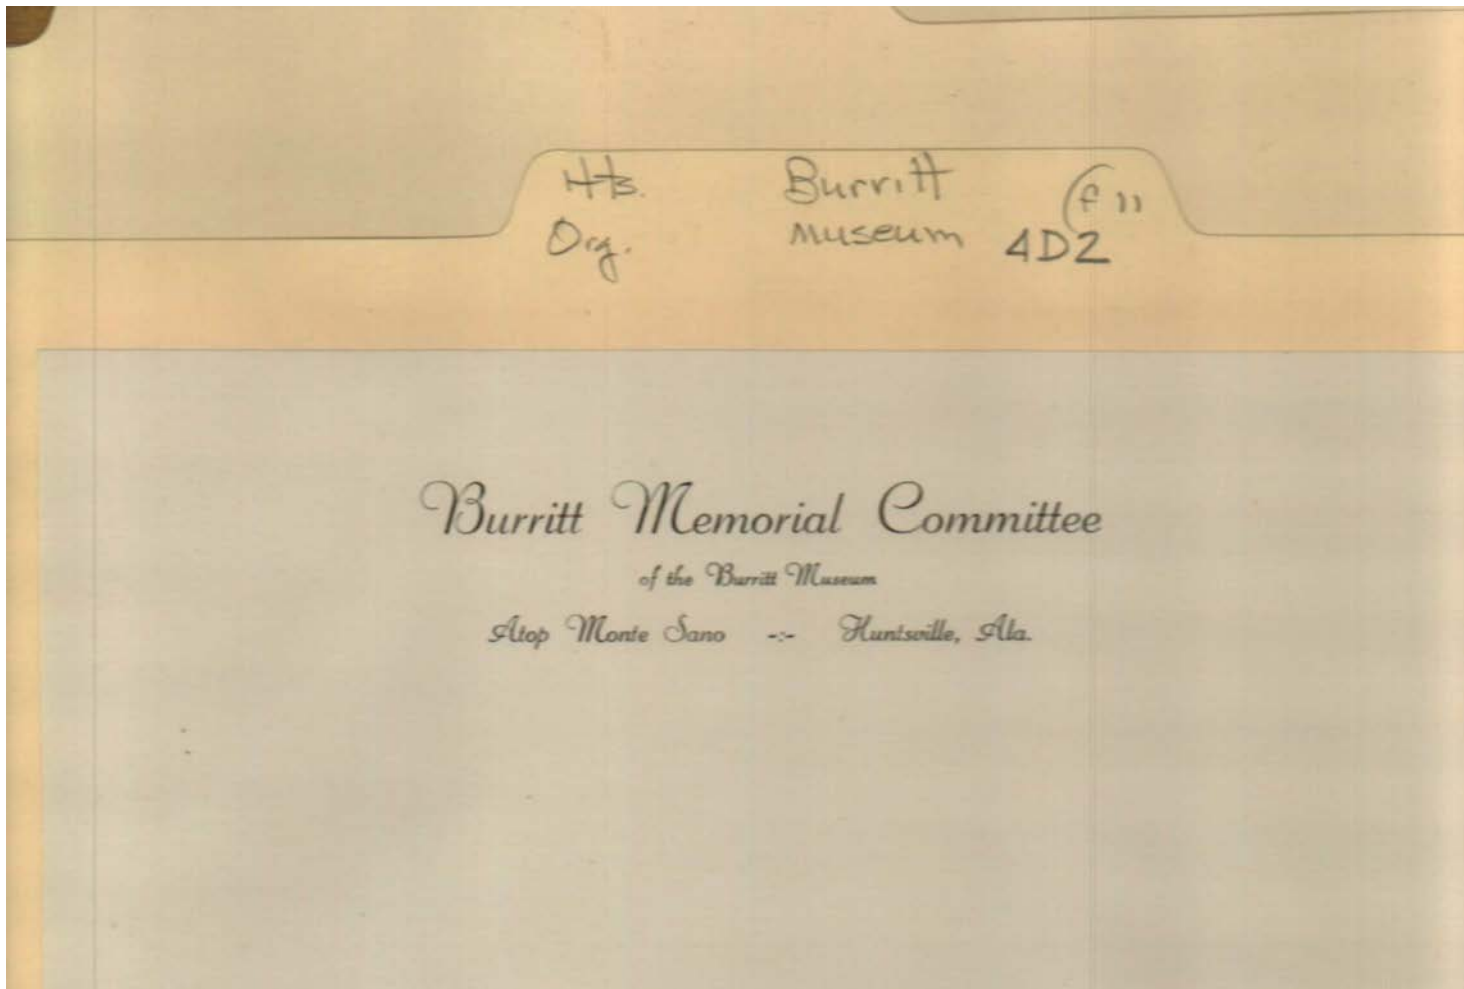 Hts. Burritt (f 11
Org. Museum 4D2
Burritt Memorial Committee
of the Burritt Museum
Atop Monte Sano -:- Huntsville, Ala.